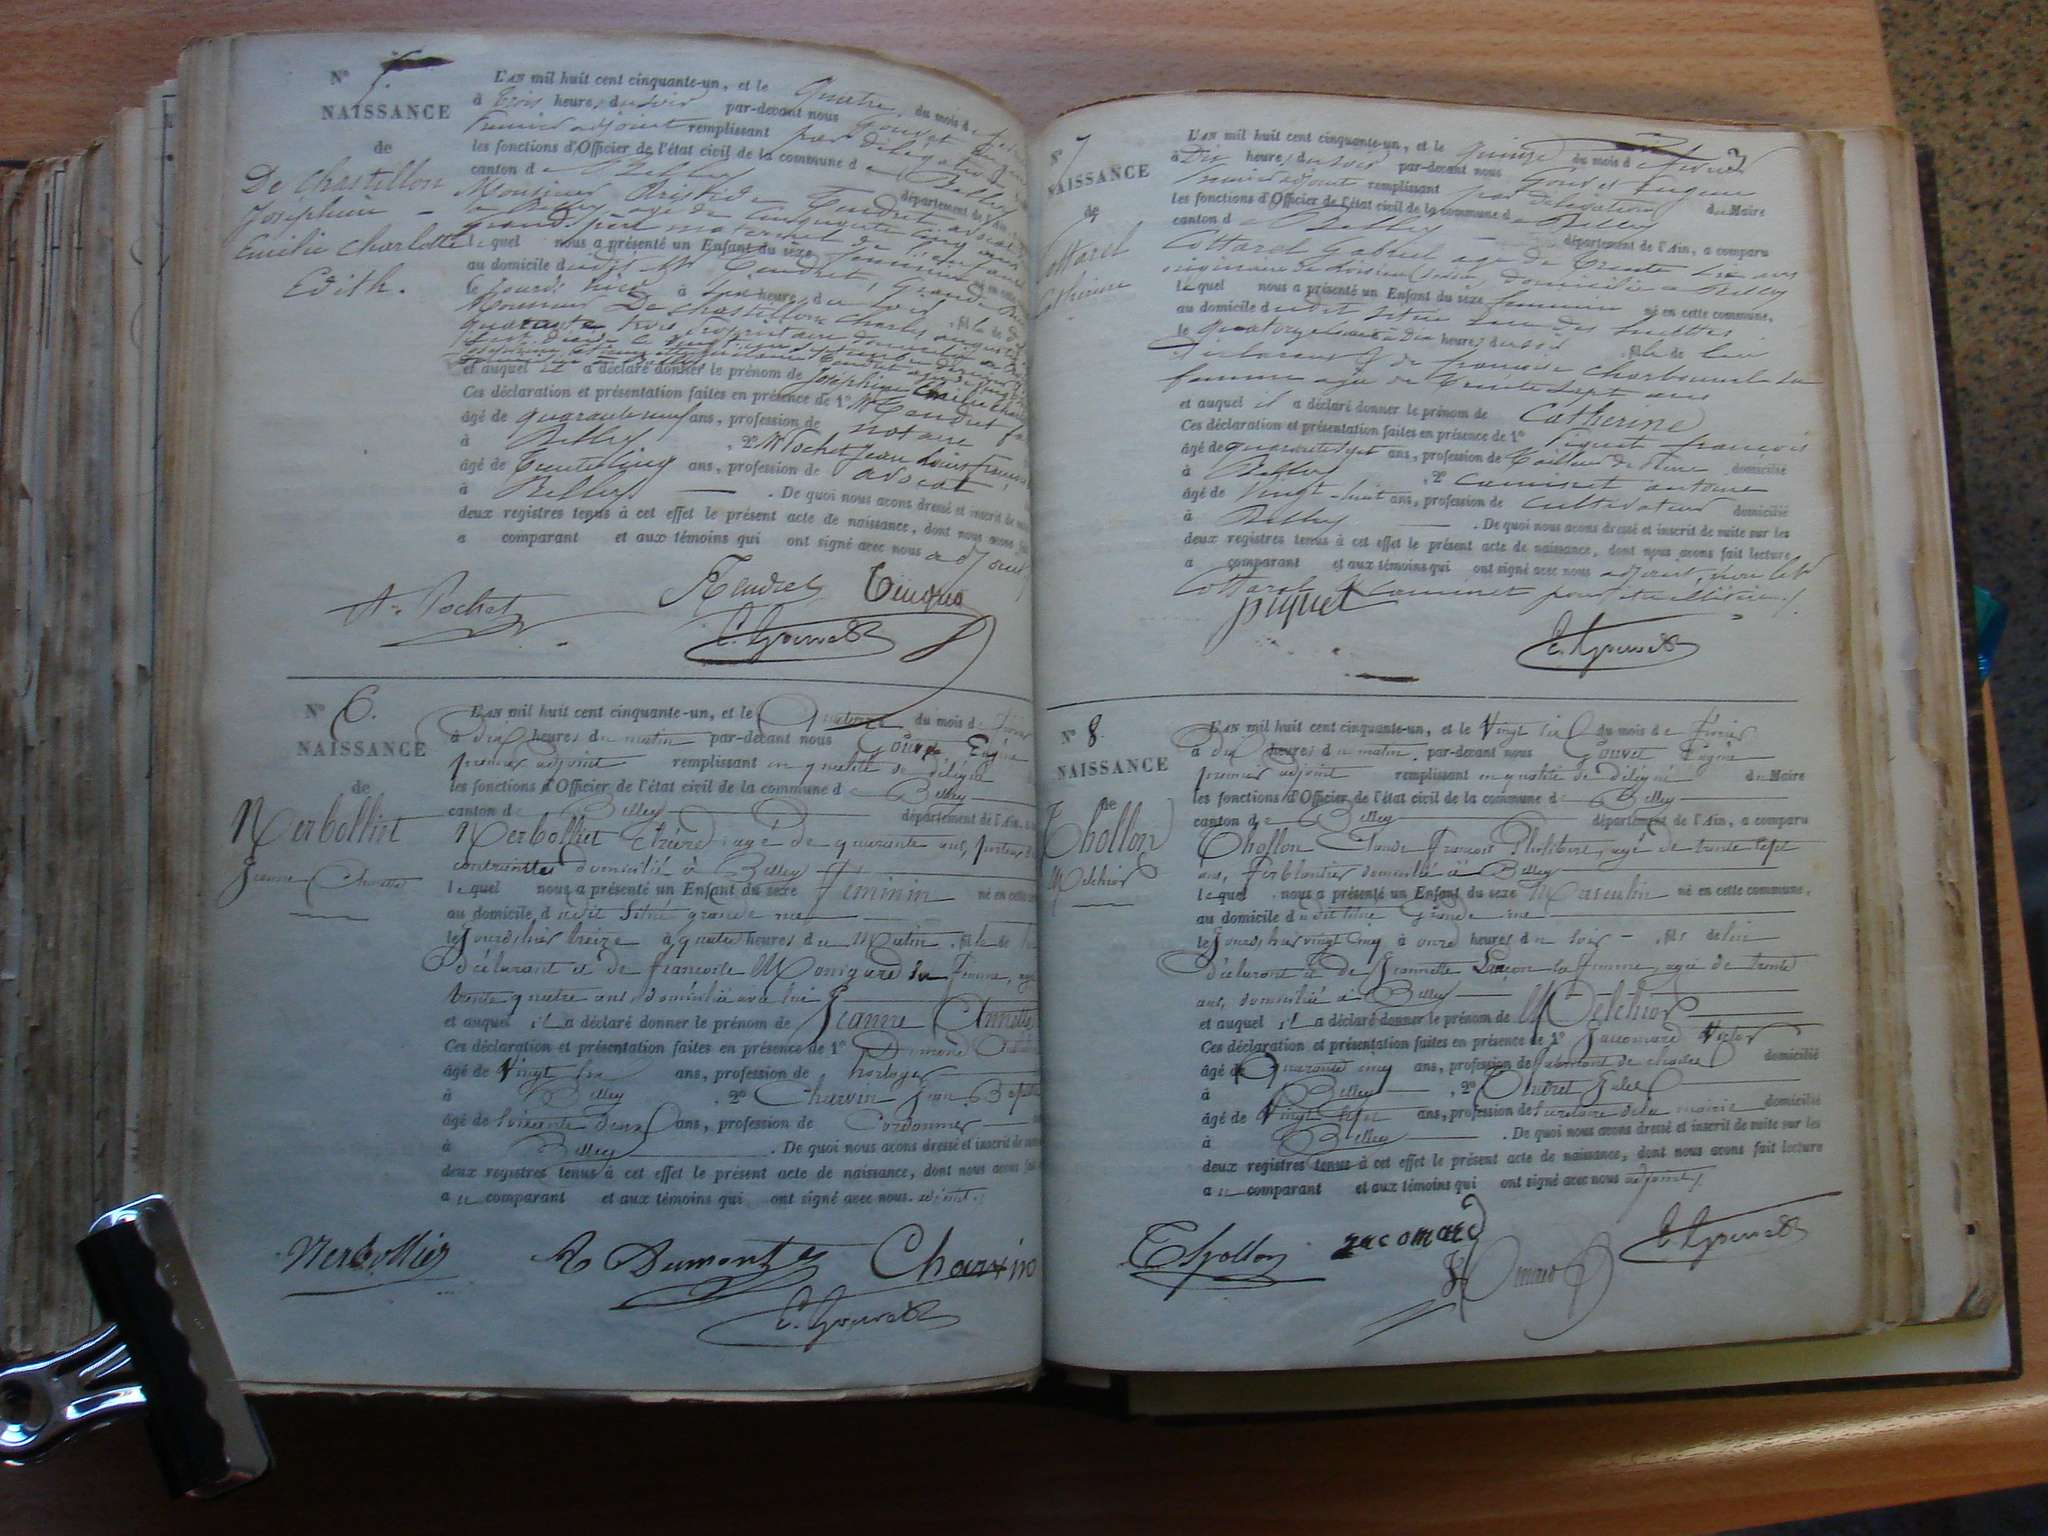 NAISSANCE
de
De Chastillon
Joséphine
Emilie Charlotte
Edith.
L'AN mil huit cent cinquante-un, et le quatre du mois de
à trois heures du soir par-devant nous Gouvet
premier adjoint remplissant par délégation
les fonctions d'Officier de l'état civil de la commune de Belley
canton de Belley département de l'Ain
Monsieur Aristide Tendret avocat
à Belley âgé de cinquante cinq ans
grand-père maternel de l'enfant
lequel nous a présenté un Enfant du sexe féminin né en cette
au domicile dudit Mr Tendret, grande rue
le jourd'hier à heures du soir
Monsieur De Chastillon Charles
quarante trois propriétaire
et auquel il a déclaré donner le prénom de Joséphine Emilie
Ces déclaration et présentation faites en présence de 1° Mr Tendret
âgé de quarante neuf ans, profession de notaire
à Belley, 2° Mr Pochet Jean Louis
âgé de trente cinq ans, profession de avocat
à Belley. De quoi nous avons dressé et inscrit de suite
deux registres tenus à cet effet le présent acte de naissance, dont nous avons fait
a comparant et aux témoins qui ont signé avec nous adjoint
A. Pochet Tendret Tendret
E. Gouvet
N° 6.
NAISSANCE
de
Nerbolliet
Jeanne Annette
L'AN mil huit cent cinquante-un, et le Quatorze du mois de février
à dix heures du matin par-devant nous Gouvet Eugène
premier adjoint remplissant en qualité de délégué
les fonctions d'Officier de l'état civil de la commune de Belley
canton de Belley département de l'Ain,
Nerbolliet âgé de quarante ans, porteur de
contraintes domicilié à Belley
lequel nous a présenté un Enfant du sexe Féminin né en cette
au domicile dudit situé grande rue
le jourd'hier treize à quatre heures du Matin, fille de lui
déclarant et de Françoise Monigard sa femme, âgée
trente quatre ans, domiciliée avec lui
et auquel il a déclaré donner le prénom de Jeanne Annette
Ces déclaration et présentation faites en présence de 1° Dumond
âgé de Vingt six ans, profession de horloger
à Belley, 2° Charvin Jean Baptiste
âgé de soixante deux ans, profession de Cordonnier
à Belley. De quoi nous avons dressé et inscrit de suite
deux registres tenus à cet effet le présent acte de naissance, dont nous avons fait
au comparant et aux témoins qui ont signé avec nous adjoint
Nerbollier Dumont Charvin
E. Gouvet
N° 7
NAISSANCE
de
Cottarel
Catherine
L'AN mil huit cent cinquante-un, et le quinze du mois de février
à Dix heures du soir par-devant nous Gouvet Eugene
premier adjoint remplissant par délégation du Maire
les fonctions d'Officier de l'état civil de la commune de Belley
canton de Belley département de l'Ain, a comparu
Cottarel Gabriel âgé de trente six ans
originaire de domicilié à Belley
lequel nous a présenté un Enfant du sexe féminin né en cette commune,
au domicile dudit situé rue des
le quatorze à Dix heures du soir, fille de lui
déclarant et de françoise Charbonnel sa
femme âgée de trente sept ans
et auquel il a déclaré donner le prénom de Catherine
Ces déclaration et présentation faites en présence de 1° Piquet françois
âgé de quarante sept ans, profession de Tailleur de pierre domicilié
à Belley, 2° Caminet antoine
âgé de vingt-huit ans, profession de cultivateur domicilié
à Belley. De quoi nous avons dressé et inscrit de suite sur les
deux registres tenus à cet effet le présent acte de naissance, dont nous avons fait lecture
a comparant et aux témoins qui ont signé avec nous adjoint, non led.
Cottarel & Caminet pour être illitérés
piquet
E. Gouvet
N° 8
NAISSANCE
de
Chollon
Melchior
L'AN mil huit cent cinquante-un, et le vingt six du mois de Février
à dix heures du matin par-devant nous Gouvet Eugène
premier adjoint remplissant en qualité de délégué du Maire
les fonctions d'Officier de l'état civil de la commune de Belley
canton de Belley département de l'Ain, a comparu
Chollon Claude François Philibert, âgé de trente sept
ans, ferblantier domicilié à Belley
lequel nous a présenté un Enfant du sexe Masculin né en cette commune,
au domicile dudit situé Grande rue
le jourd'hier vingt cinq à onze heures du soir, fils de lui
déclarant et de Jeannette sa femme, âgée de trente
ans, domiciliée à Belley
et auquel il a déclaré donner le prénom de Melchior
Ces déclaration et présentation faites en présence de 1° Jacomard Victor
âgé de Quarante cinq ans, profession de fabricant de domicilié
à Belley, 2° Jules
âgé de vingt sept ans, profession de secrétaire de la mairie domicilié
à Belley. De quoi nous avons dressé et inscrit de suite sur les
deux registres tenus à cet effet le présent acte de naissance, dont nous avons fait lecture
au comparant et aux témoins qui ont signé avec nous adjoint
Chollon jacomard
E. Gouvet